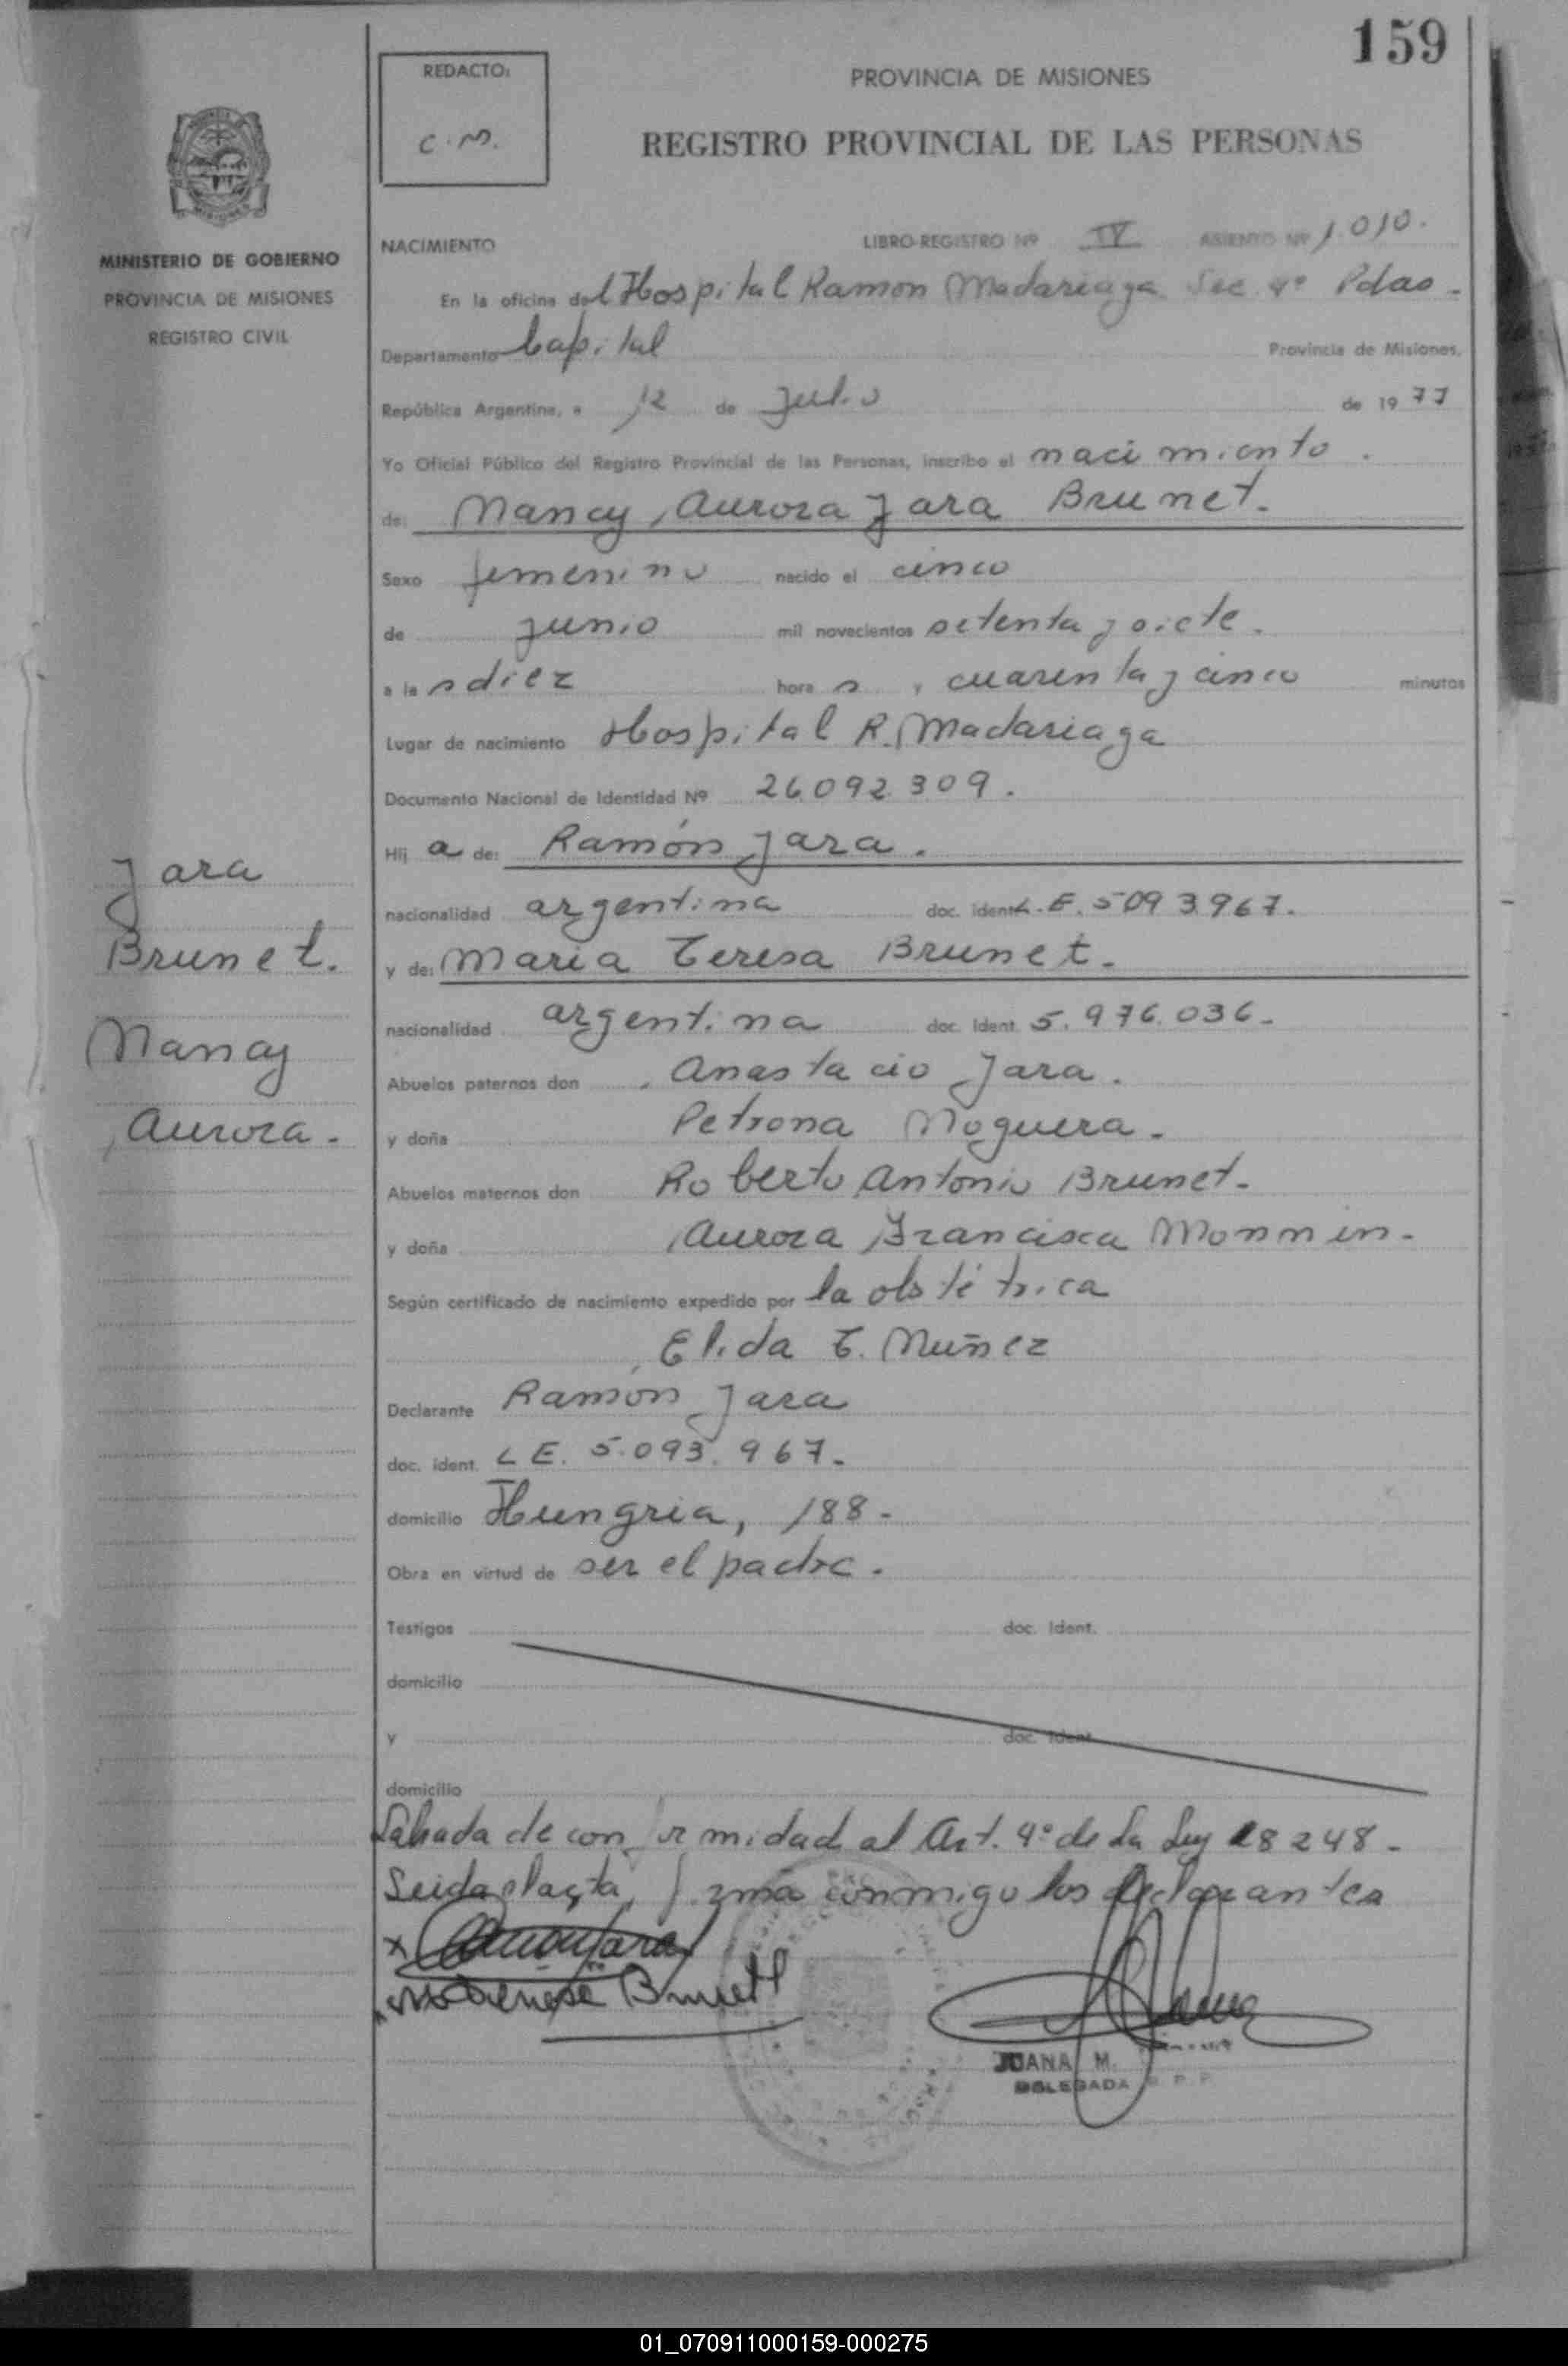 159
REDACTO:
C.M.
PROVINCIA DE MISIONES
REGISTRO PROVINCIAL DE LAS PERSONAS
MINISTERIO DE GOBIERNO
PROVINCIA DE MISIONES
REGISTRO CIVIL
NACIMIENTO LIBRO-REGISTRO Nº IV ASIENTO Nº 1.010.
En la oficina del Hospital Ramon Madariaga Sec 4º Pdas.
Departamento Capital Provincia de Misiones,
República Argentina, a 12 de Julio de 1977
Yo Oficial Público del Registro Provincial de las Personas, inscribo el nacimiento.
de: Nancy Aurora Jara Brunet.
Sexo femenino nacido el cinco
de junio mil novecientos setenta y siete.
a las diez horas y cuarenta y cinco minutos
Lugar de nacimiento Hospital R. Madariaga
Documento Nacional de Identidad Nº 26.092.309.
Hija de: Ramón Jara.
nacionalidad argentina doc. ident. L.E. 5093.967.
y de: Maria Teresa Brunet.
nacionalidad argentina doc. Ident. 5.976.036.
Abuelos paternos don Anastacio Jara.
y doña Petrona Noguera.
Abuelos maternos don Roberto Antonio Brunet.
y doña Aurora Francisca Monnin.
Según certificado de nacimiento expedido por la obstétrica
Elida T. Nuñez
Declarante Ramón Jara
doc. ident. L E. 5.093.967.
domicilio Hungria, 188.
Obra en virtud de ser el padre.
Testigos doc. Ident.
domicilio
y doc. Ident.
domicilio
Labrada de conformidad al Art. 4º de La Ley 18248.
Leida el acta, firma conmigo los declarantes
Jara
Brunet.
Nancy
Aurora.
x Ramon Jara
Ma Teresa Brunett
JUANA M.
DELEGADA R. P. P.
01_070911000159-000275